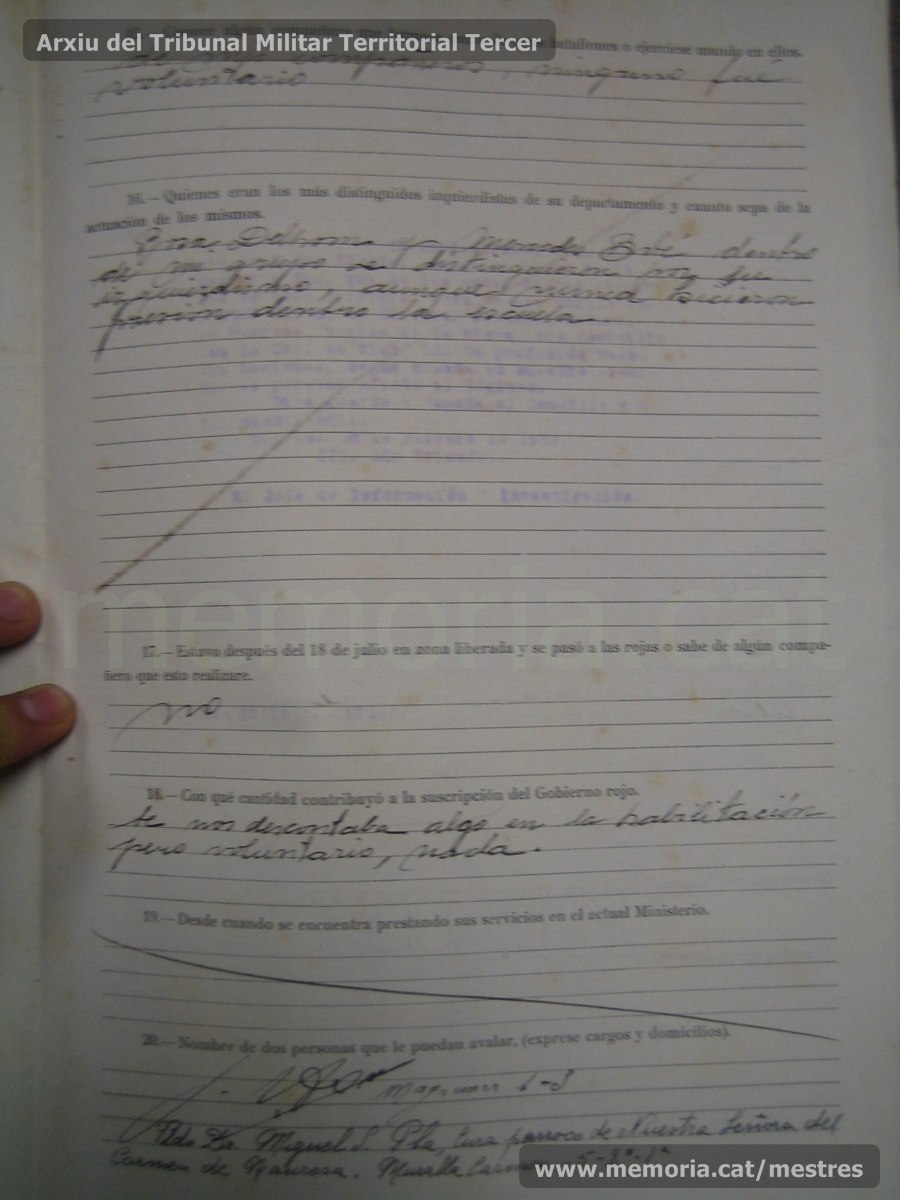 Arxiu del Tribunal Militar Territorial Tercer
batallones o ejerciese mando en ellos.
de mis compañeros, ninguno fué
voluntario
16.—Quienes eran los más distinguidos izquierdistas de su departamento y cuanto sepa de la
actuación de los mismos.
Rosa Delhom y Mercedes dentro
de mi grupo se distinguieron por su
izquierdismo, aunque nunca hicieron
presión dentro la escuela.
17.—Estuvo después del 18 de julio en zona liberada y se pasó a las rojas o sabe de algún compa-
ñero que esto realizare.
no
18.—Con qué cantidad contribuyó a la suscripción del Gobierno rojo.
Se nos descontaba algo en la habilitación
pero voluntario, nada.
19.—Desde cuando se encuentra prestando sus servicios en el actual Ministerio.
20.—Nombre de dos personas que le puedan avalar, (exprese cargos y domicilios).
Rdo Dr. Miguel S. Pla, Cura párroco de Nuestra Señora del
Carmen de Manresa. Muralla Carmen
memoria.cat
www.memoria.cat/mestres